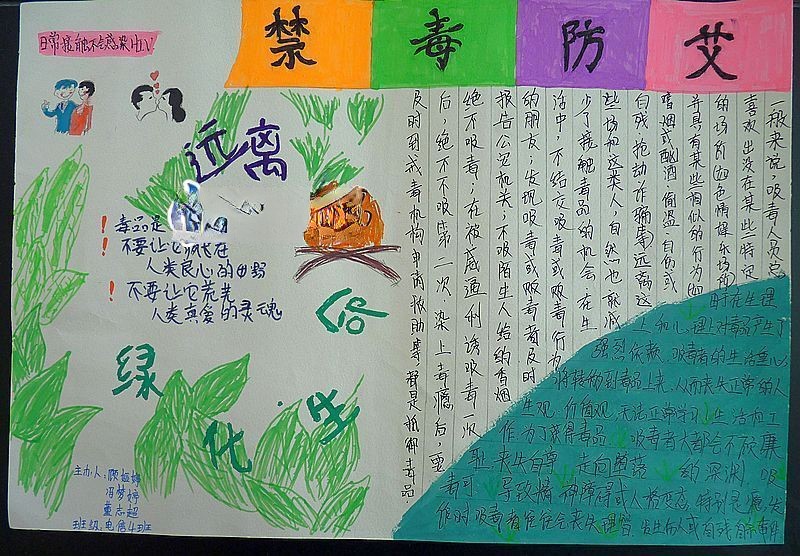 禁毒防艾
日常接触不会感染HIV
远离
毒品是
不要让它疯长在
人类良心的田野
不要让它荒芜
人类真爱的灵魂
绿化生命
主办人：顾
冯梦婷
董志超
班级：电信4班
一般来说，吸毒人员总
喜欢出没在某些特定
的场所如色情娱乐场所
并具有某些相似的行为如
嗜烟或酗酒、偷盗、自伤或
自残、抢劫诈骗等，远离这
些场和这类人，自然也就减
少了接触毒品的机会，在生
活中，不结交吸毒或贩毒行为
的朋友；发现吸毒或贩毒者及时
报告公安机关；不吸陌生人给的香烟
绝不吸毒；在被威逼利诱吸毒一次
后，绝不不吸第二次，染上毒瘾后，要
及时到戒毒机构申请救助等都是抵御毒品
由于在生理
上和心理上对毒品产生了
强烈依赖，吸毒者的生活重心
将转移到毒品上来，从而丧失正常的人
生观、价值观，无法正常学习、生活和工
作，为了获得毒品，吸毒者大都会不顾廉
耻，丧失自尊，走向堕落的深渊，吸
毒可导致精神障碍或人格变态，特别是瘾发
作时吸毒者往往会丧失理智，发生伤人或自残自杀事件